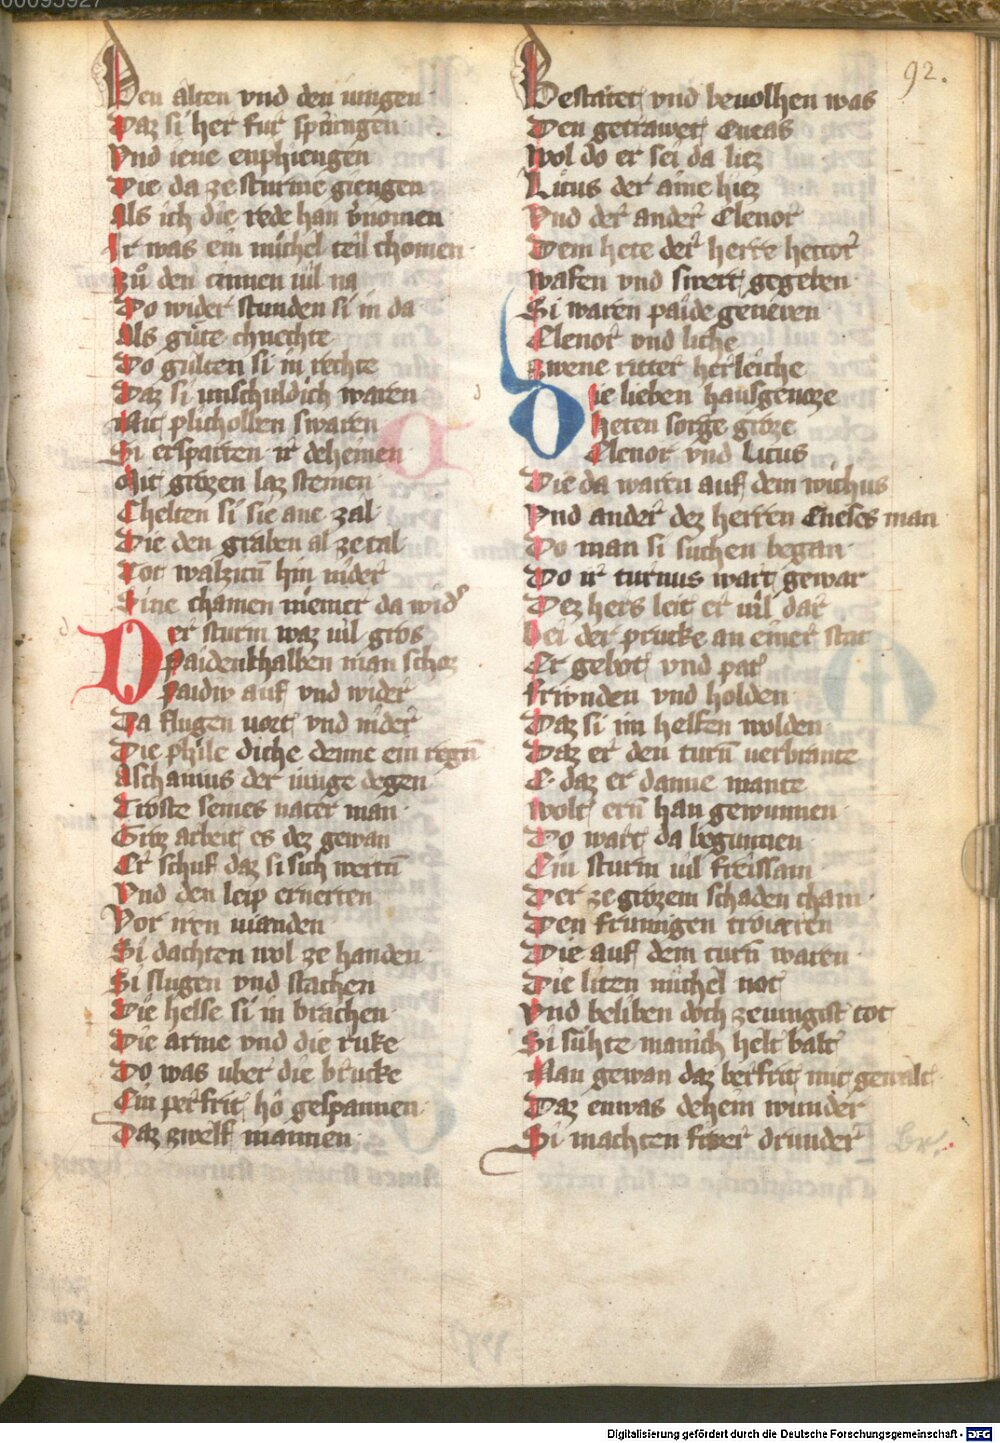 00095927
92.
Den alten vnd den iungen
Daz si her fur sprungen
Vnd iene enphiengen
Die da ze sturme giengen
Als ich die rede han v̓nomen
Ir was ein michel teil chomen
Zů den cinnen uil na
Do wider stunden si in da
Als gůte chnechte
Do gulten si in rechte
Daz si unschuldich waren
Mit plicholben swaren
Si ersparten ir deheinen
Mit grozen laz steinen
Chelten si sie ane zal
Die den graben al ze tal
Tot walzten hin nider
Sine chamen niemer da wid᷒
Der sturm waz uil gros
Paidenthalben man schoz
Paidiv auf vnd wider
Da flugen uort vnd nider
Die phile diche denne ein regn̄
Aschanius der iunge degen
Troste seines uater man
Groz arbeit es dez gewan
Er schuf daz si sich wertn̄
Vnd den leip ernerten
Vor iren uianden
Si dachten wol ze handen
Si slugen vnd stachen
Die helse si in brachen
Die arme vnd die ruke
Do was uber die brucke
Ein perfrit ho gespannen
Daz zwelf mannen
Bestatet vnd beuolhen was
Den getrawet Eneas
Wol do er sei da liez
Licus der aine hiez
Vnd der ander Elenor
Dem hete der herre hector
Wafen vnd swert gegeben
Si waren paide geneuen
Elenor vnd liche
Zwene ritter herleiche
Die lieben hausgenoze
Heten sorge groze
Elenor vnd Licus
Die da waren auf dem wichus
Vnd ander dez herren Eneses man
Do man si suchen began
Do ir turnus wart gewar
Dez hers leit er uil dar
Bei der prucke an einer stat
Er gebot vnd pat
Friwnden vnd holden
Daz si im helfen wolden
Daz er den turn̄ uerbrante
E daz er danne wante
Wolt ern̄ han gewunnen
Do wart da begunnen
Ein sturm uil freissam
Der ze grozem schaden cham
Den frumigen troiaren
Die auf dem turn̄ waren
Die liten michel not
Vnd beliben doch zeiungist tot
Si sůhte manich helt balt
Man gewan daz berfrit mit gewalt
Daz enwas dehein wunder
Si machten fiwer drunder